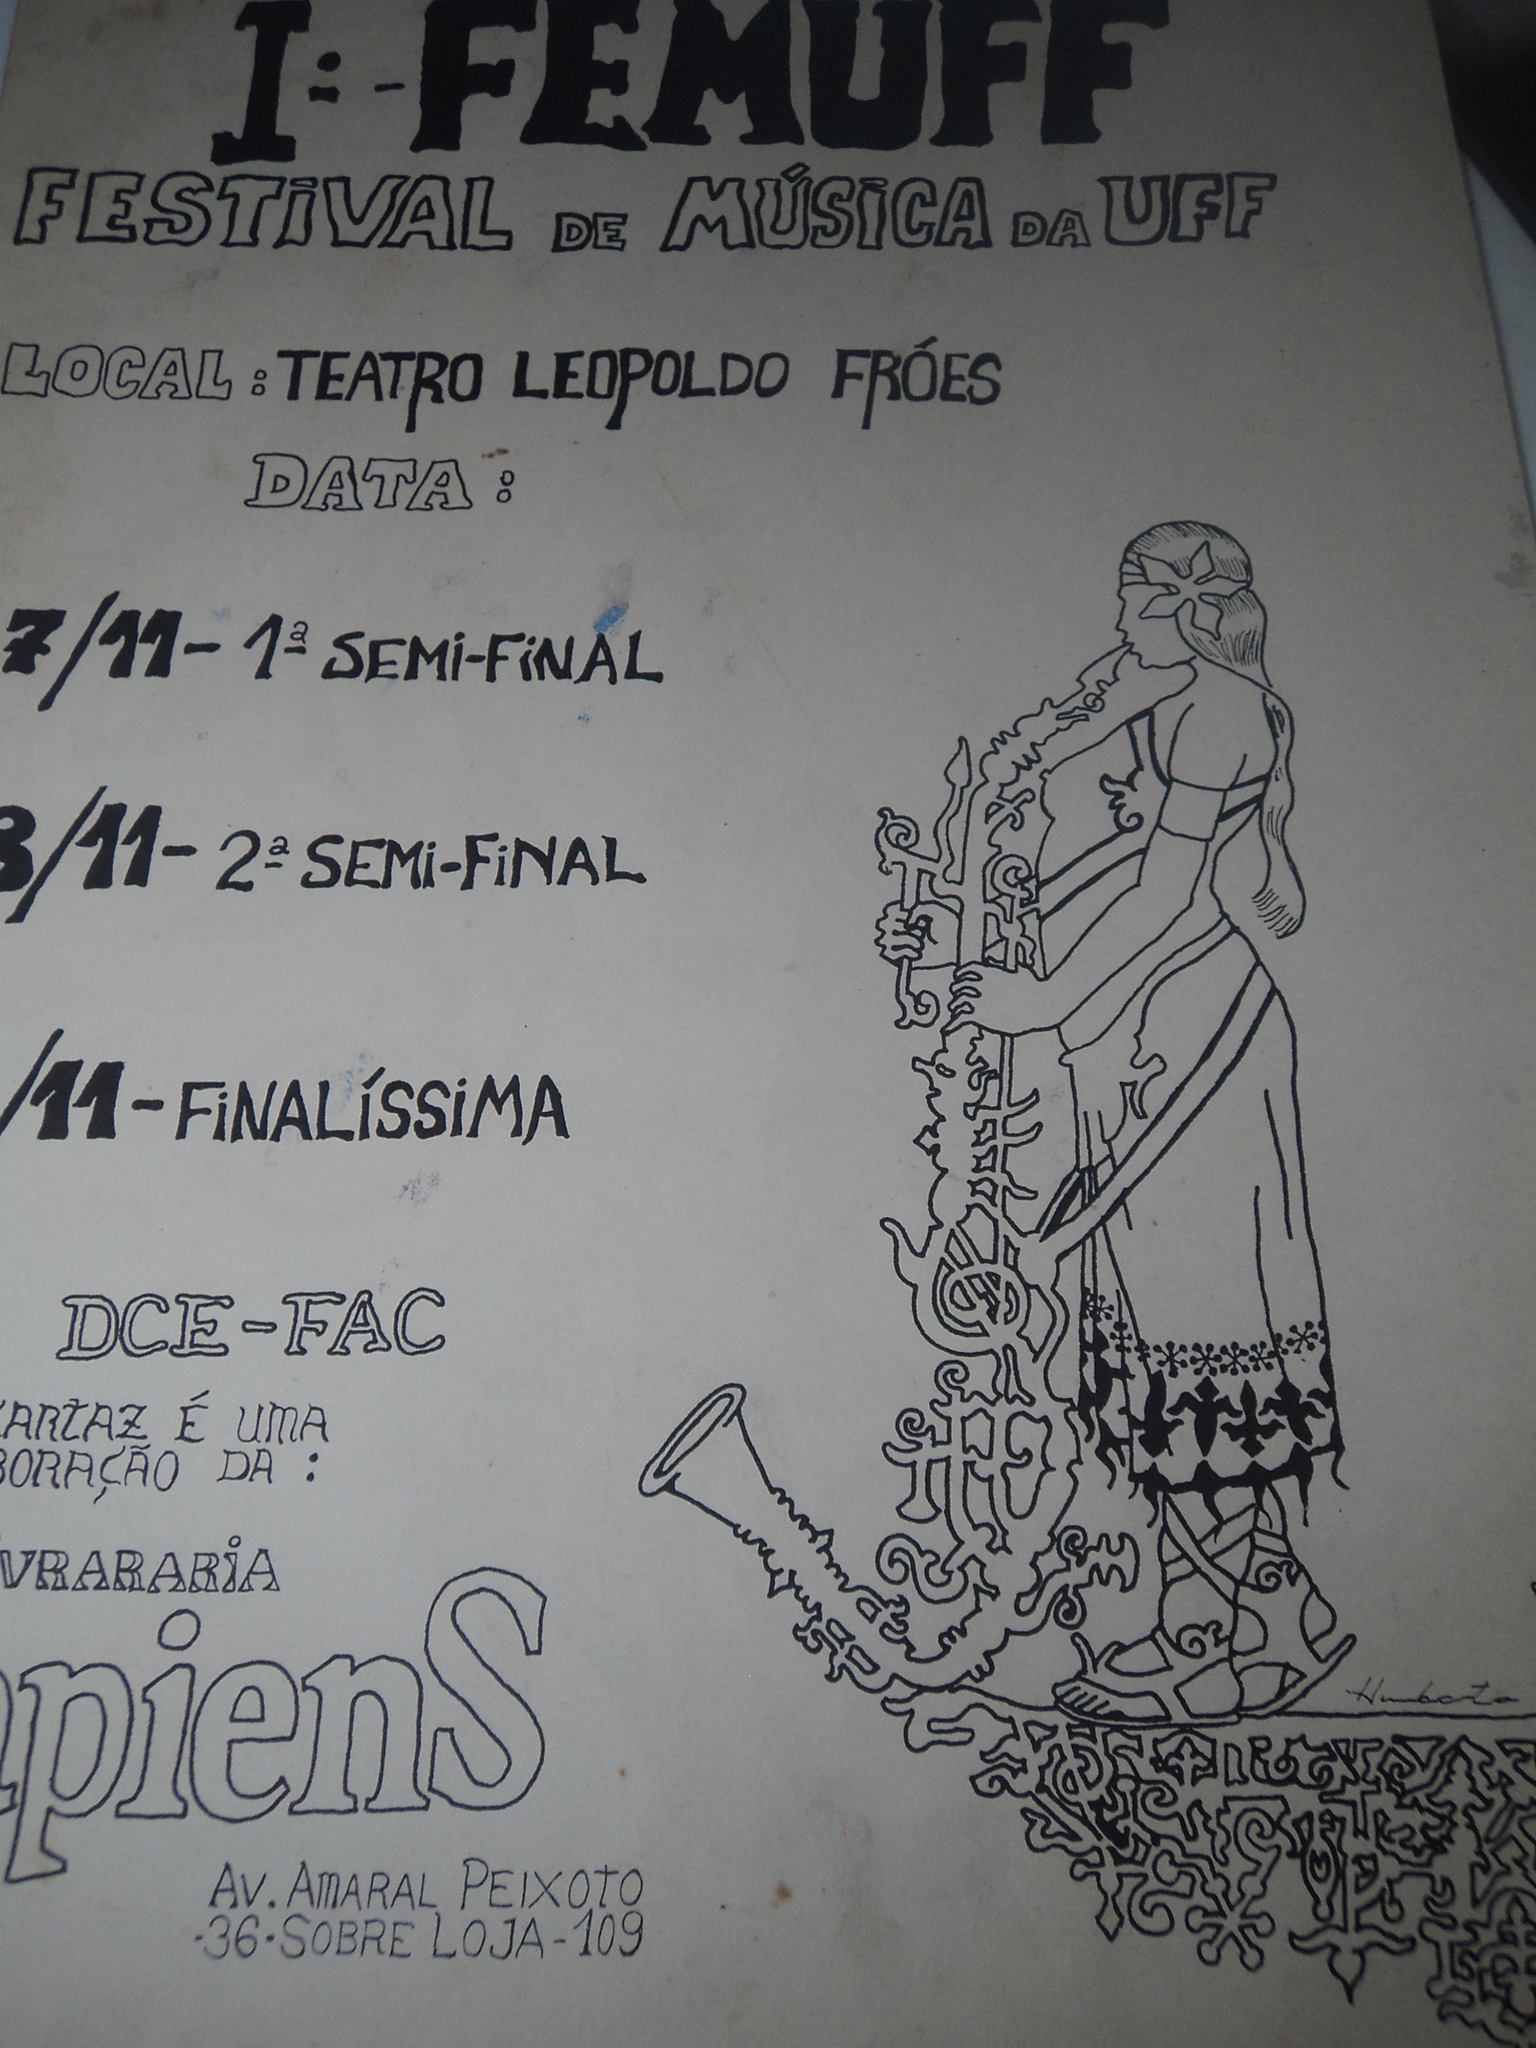 Iº - FEMUFF
FESTIVAL DE MÚSICA DA UFF
LOCAL : TEATRO LEOPOLDO FRÓES
DATA :
7/11 - 1ª SEMI-FINAL
8/11 - 2ª SEMI-FINAL
/11 - FINALÍSSIMA
DCE - FAC
CARTAZ É UMA
BORAÇÃO DA :
VRARARIA
apienS
AV. AMARAL PEIXOTO
-36-SOBRE LOJA-109
Humberto